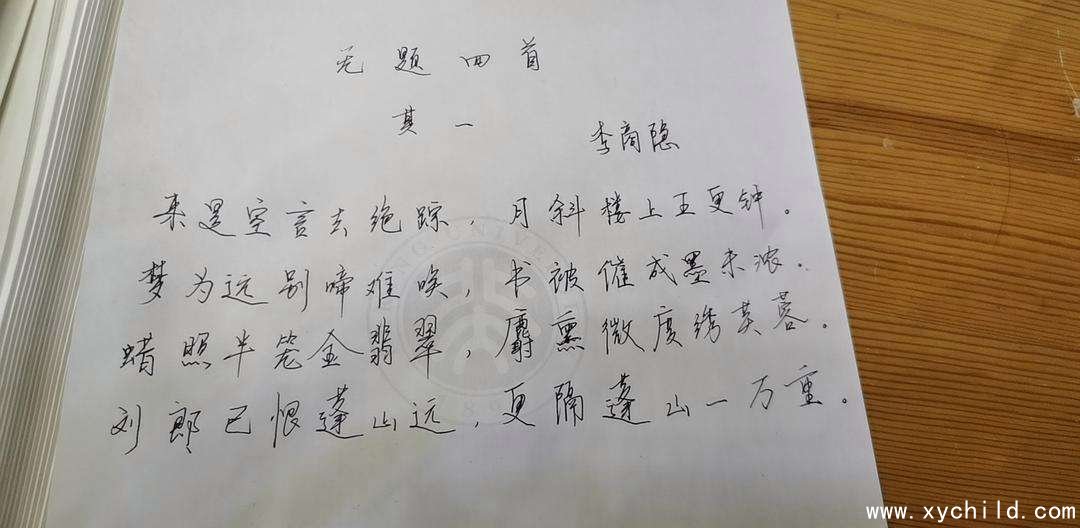 无题四首
其一
李商隐
来是空言去绝踪，月斜楼上五更钟。
梦为远别啼难唤，书被催成墨未浓．
蜡照半笼金翡翠，麝熏微度绣芙蓉．
刘郎已恨蓬山远，更隔蓬山一万重。
www.xychild.com